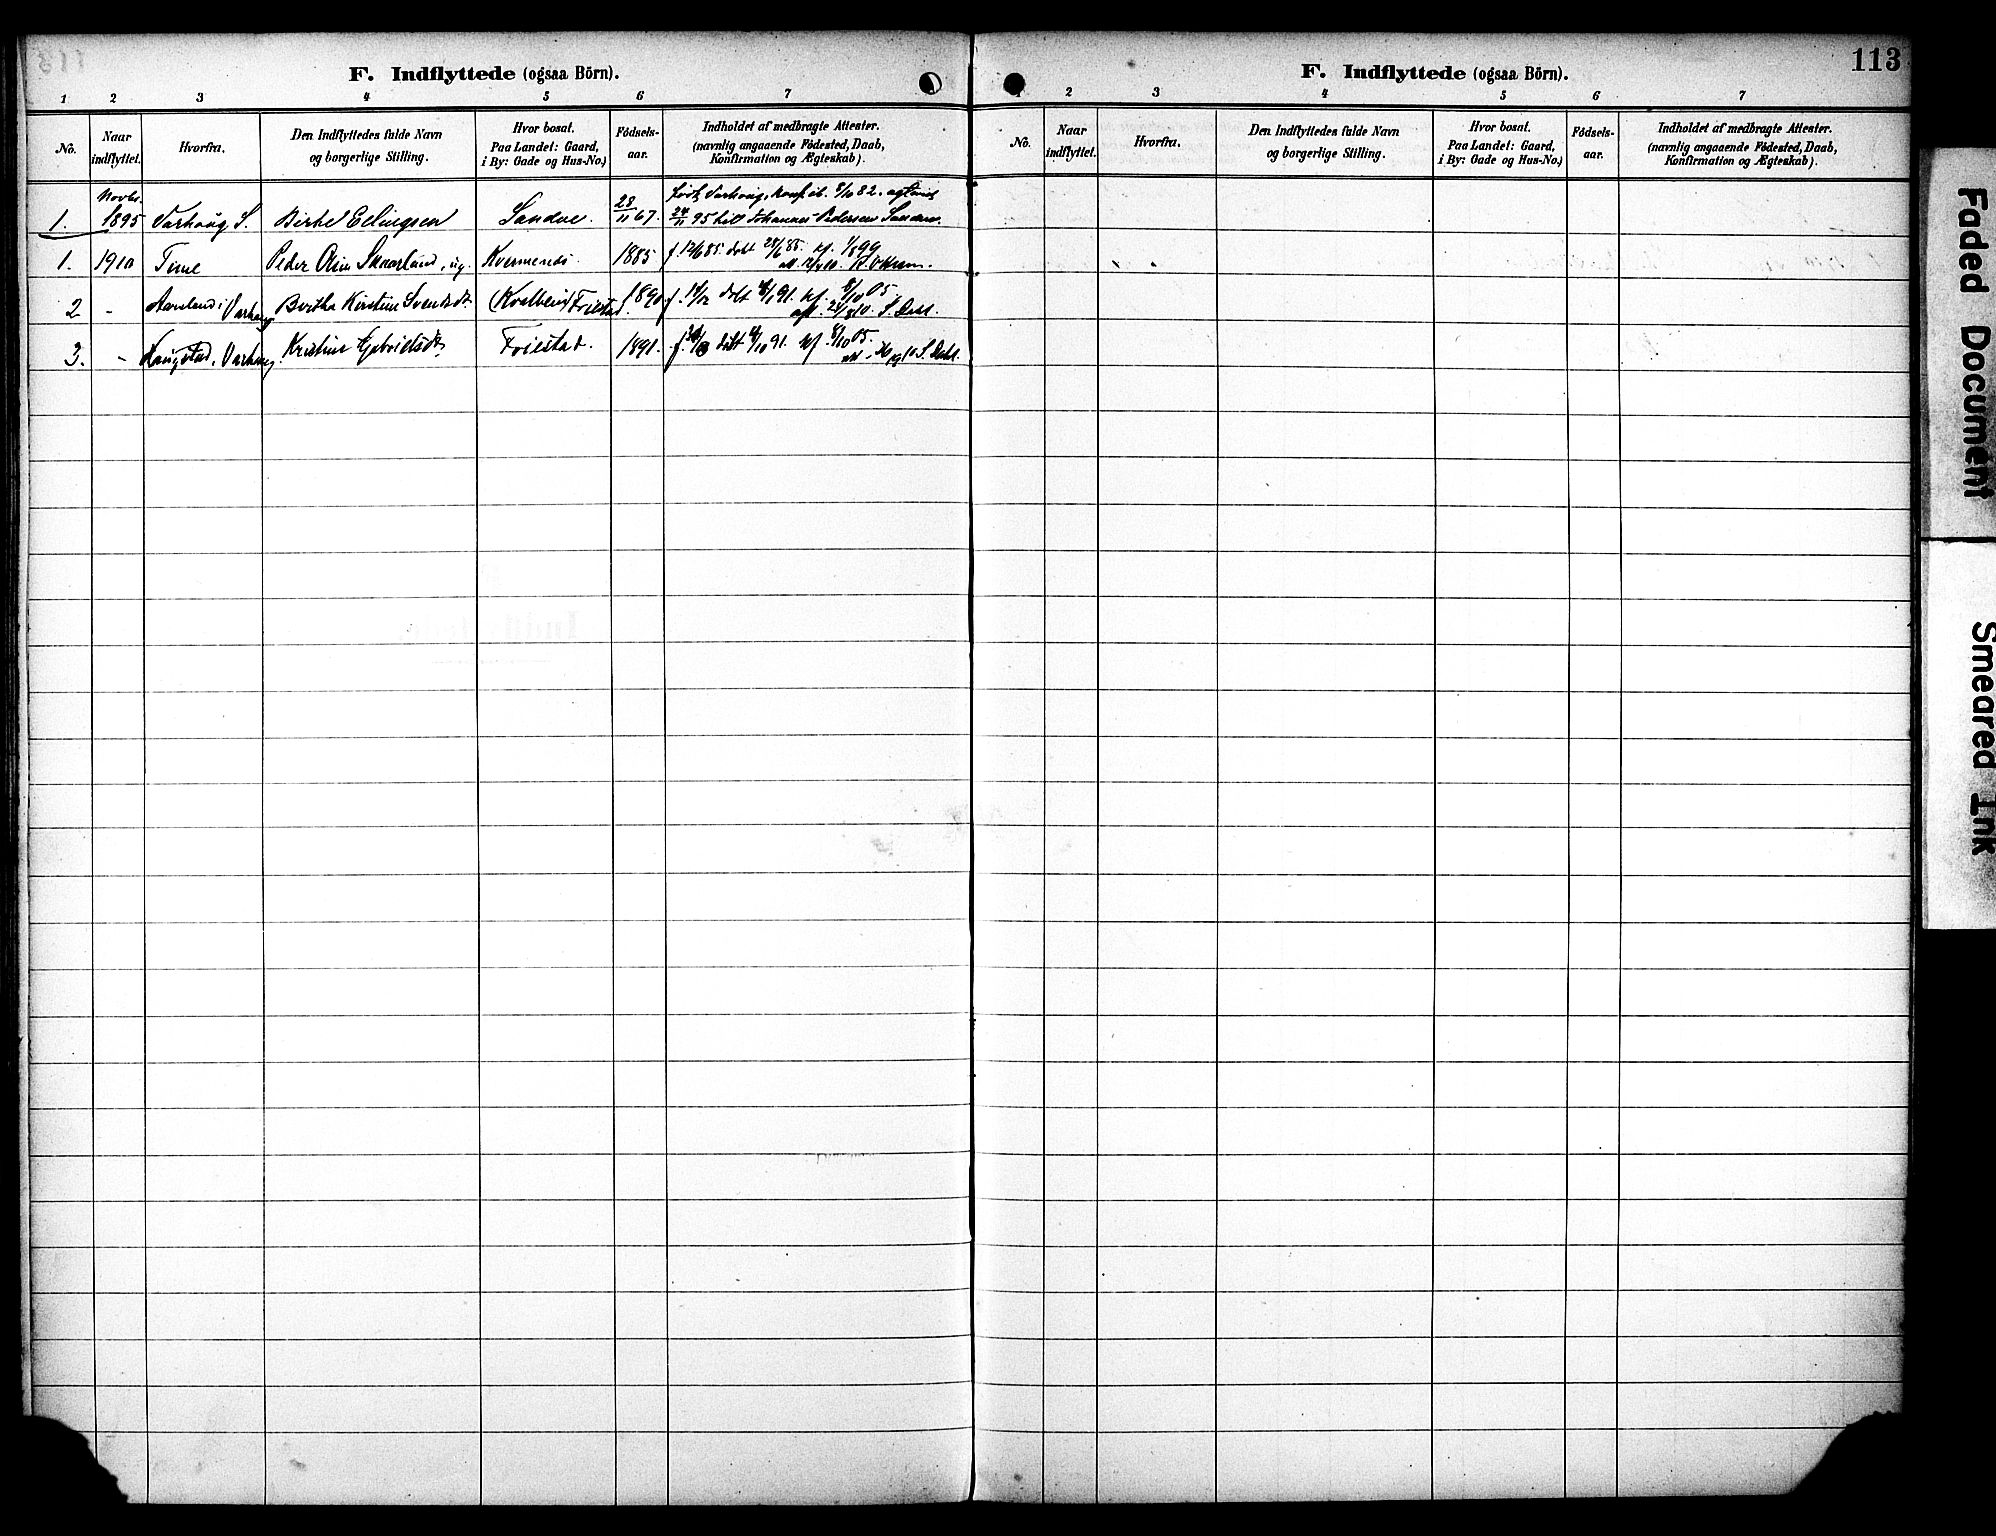 113
F. Indflyttede (ogsaa Börn).
1 2 3 4 5 6 7
No.
Naar indflyttet.
Hvorfra.
Den Indflyttedes fulde Navn
og borgerlige Stilling.
Hvor bosat.
Paa Landet: Gaard,
i By: Gade og Hus-No.)
Födsels-
aar.
Indholdet af medbragte Attester.
(navnlig angaaende Födested, Daab,
Konfirmation og Ægteskab).
1. Novbr. 1895 Varhoug S. Birte Elingsen Sandve. 28/11 67. född Varhoug, konf. ib. 8/10 82. agteviet
24/11 95 till Johannes Pedersen Sandve.
1. 1910 Time Peder Olin Skaarland, ug. Kvernenes. 1885 f. 12/6 85. døbt 28/6 85. kf. 1/8 99
2 - Aarsland i Varhaug Bertha Kirstine Svendsdt. (Kvalbein) Friestad. 1890 døbt 91. kf. 8/10 05.
S. Dahl.
3. - Haugstad, Varhaug. Kristine Gabrielsdt. Friestad. 1891. døbt 4/10 91. kf 8/10 05.
S. Dahl.
F. Indflyttede (ogsaa Börn).
1 2 3 4 5 6 7
No.
Naar indflyttet.
Hvorfra.
Den Indflyttedes fulde Navn
og borgerlige Stilling.
Hvor bosat.
Paa Landet: Gaard,
i By: Gade og Hus-No.)
Födsels-
aar.
Indholdet af medbragte Attester.
(navnlig angaaende Födested, Daab,
Konfirmation og Ægteskab).
113
Faded Document
Smeared Ink